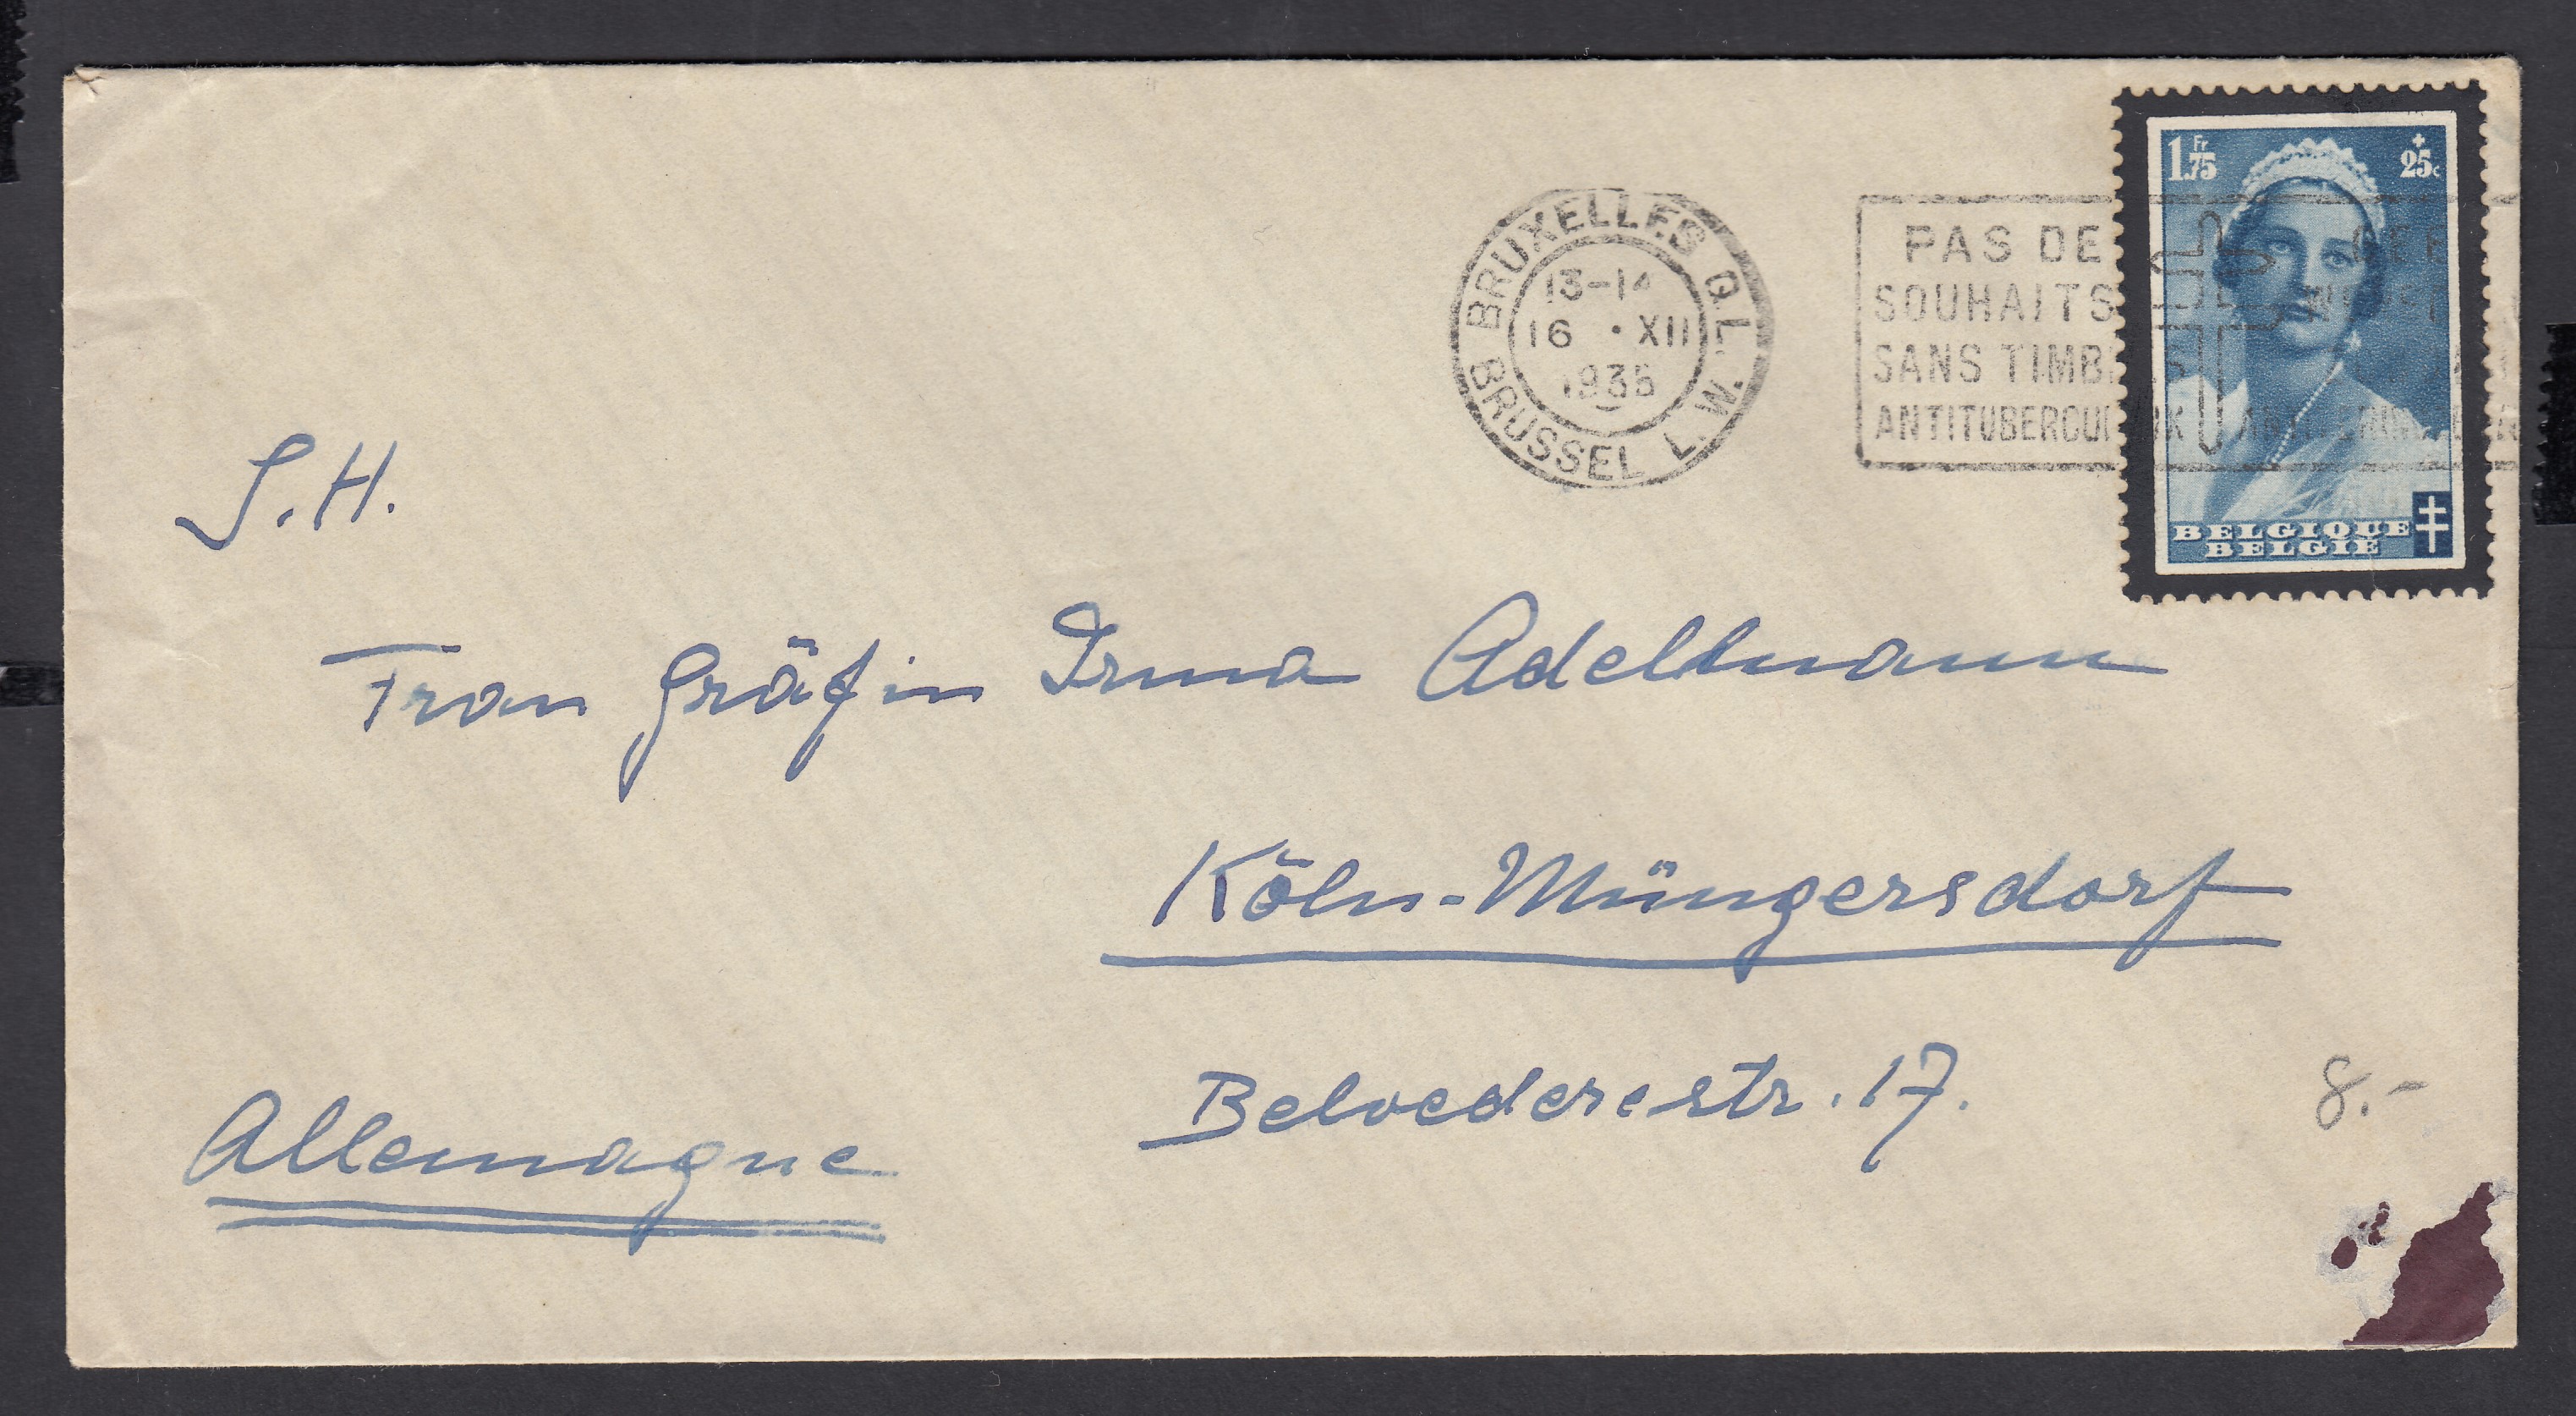 BRUXELLES Q.L.
13-14
16 • XII
1935
BRUSSEL L.W.
PAS DE
SOUHAITS
SANS TIMB
ANTITUBERCUL
1 Fr 75
+ 25c
BELGIQUE
BELGIE
S.H.
Frau Gräfin Irma Adelmann
Köln-Müngersdorf
Belvederestr. 17.
Allemagne
8.-